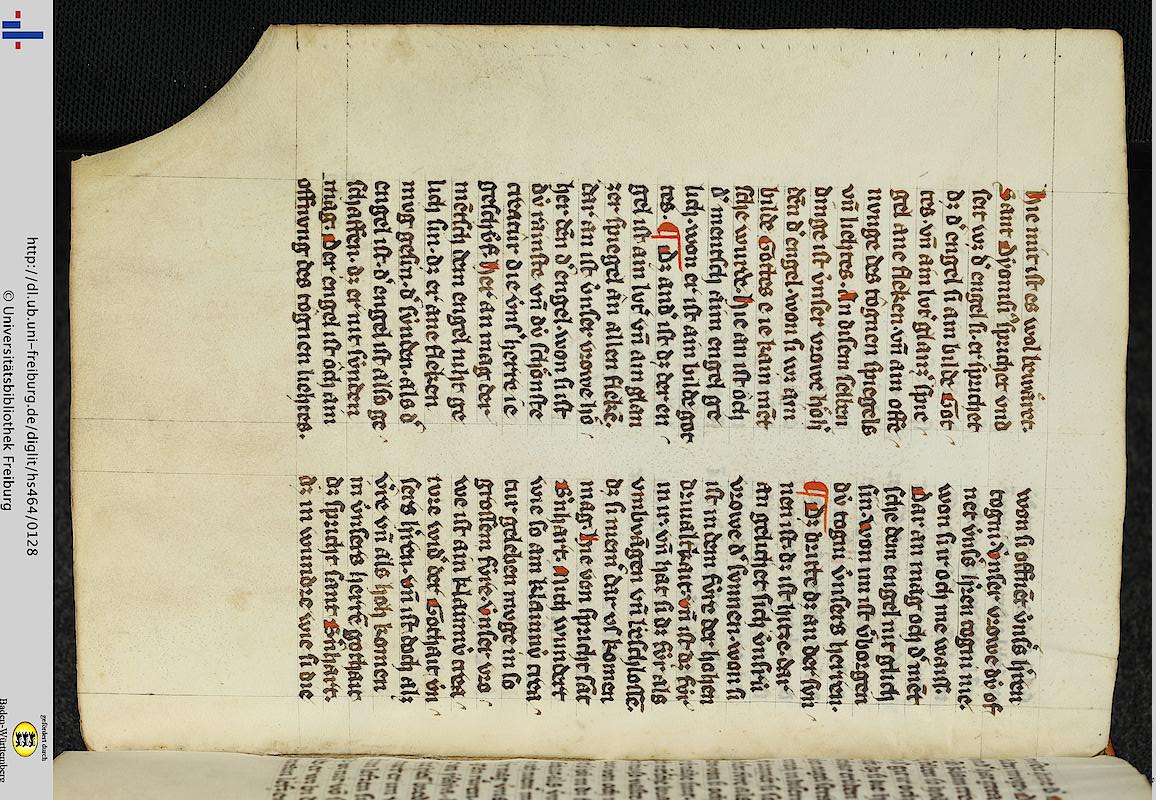 hie mit ist es vol bewåret.
Sant dyonisiꝰ sprichet vnd
seit wz d' engel si. er sprichet
dz d' engel si ain bilde Got
tes. vn̄ ain lvt' glanz' spie
gel ane fleken. vn̄ ain offē
nvnge des tognen spiegels
vn̄ liehtes. An disem selben
dinge ist vnser vrowe hôh'
dēn d' engel. won si wz ain
bilde Gottes e ie kain mēt
sche wurde. hie an ist och
d' mentsch aim engel ge
lich. won er ist ain bilde got
tes. ¶ Dz and' ist dz der en
gel ist ain lvt' vn̄ ain glan
zer spiegel an allen flekē.
dar an ist vnser vrowe hô
her dēn d' engel. won si ist
dv́ rainste vn̄ dv́ schônste
creatur die vns' herre ie
geschůf. hier an mag der
mētsch dem engel niht ge
lich sin. dz er ane fleken
mvg gesin. d' sv́nden. als d'
engel ist. d' engel ist also ge
schaffen. dz er nit sv́nden
mag. Der engel ist och ain
offnvng des tognen liehtes.
won si offnet vnsˢ h'ren
togni. Vnser vrowe dv́ of
net vnsˢ h'ren togni me.
won si ir och me waiss.
Dar an mag och d' mēt
sche dem engel nit glich
sin. won im ist v'borgen
dv́ togni vnsers herren.
¶ Dz dritte dz an der sun
nen ist. dz ist hitze. dar
an gelichet sich vnsru
vrowe d' sunnen. won si
ist in dem fv́re der hohen
driualtkait. vn̄ ist dz fv́r
in ir. vn̄ hat si dz fv́r als
vmbvāgen vn̄ beschlossē.
dz si niem' dar vs komen
mag. hie von spricht sāt
B'nhart. Mich wundert
wie so ain klainv́ crea
tur geleben mvge in so
grossem fv́re. vnser vro
we ist ain klainv́ crea
ture wid' der Gothait vn
sers h'ren. vn̄ ist doch als
vire vn̄ als hoh komen
in vnsers herrē gothait
dz spricht sant B'nhart.
dz in wundre wie si die
http://dl.ub.uni-freiburg.de/diglit/hs464/0128
© Universitätsbibliothek Freiburg
gefördert durch
Baden-Württemberg